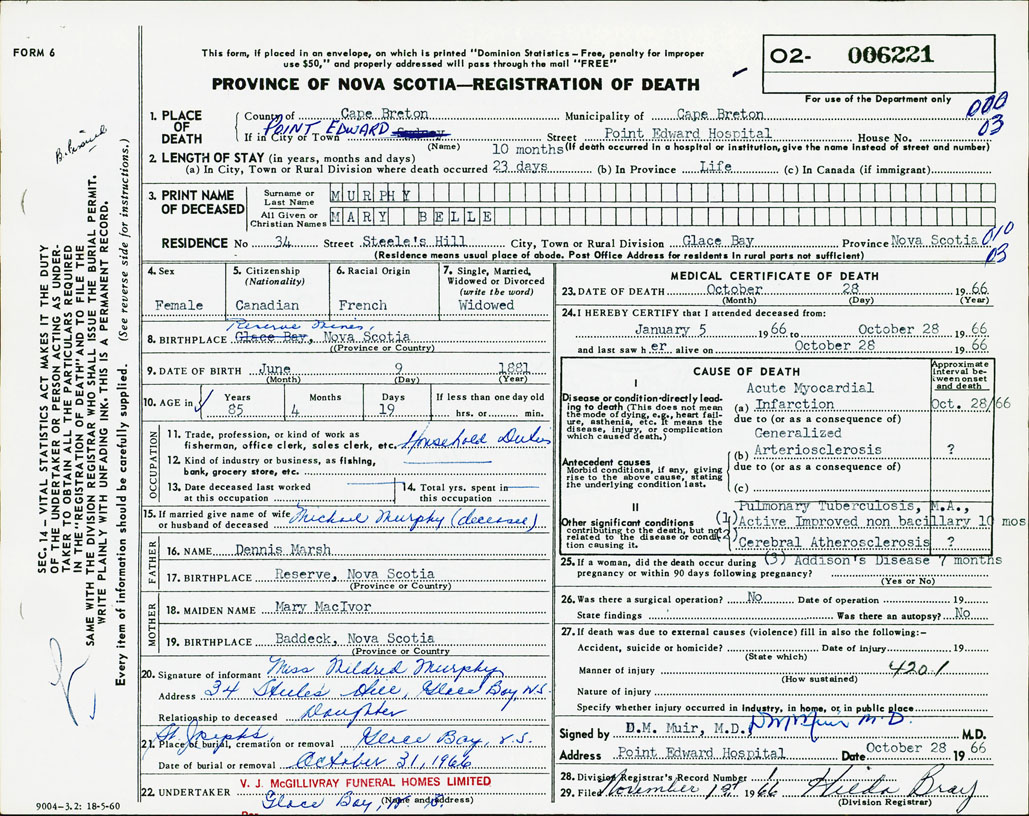 FORM 6
This form, if placed in an envelope, on which is printed "Dominion Statistics – Free, penalty for improper
use $50," and properly addressed will pass through the mail "FREE"
PROVINCE OF NOVA SCOTIA—REGISTRATION OF DEATH
02- 006221
For use of the Department only
000
03
1. PLACE OF DEATH
County of Cape Breton Municipality of Cape Breton
If in City or Town POINT EDWARD Sydney Street Point Edward Hospital House No.
(Name) 10 months (If death occurred in a hospital or institution, give the name instead of street and number)
2. LENGTH OF STAY (in years, months and days)
(a) In City, Town or Rural Division where death occurred 23 days (b) In Province Life (c) In Canada (if immigrant)
3. PRINT NAME OF DECEASED
Surname or Last Name MURPHY
All Given or Christian Names MARY BELLE
RESIDENCE No 34 Street Steele's Hill City, Town or Rural Division Glace Bay Province Nova Scotia
010
03
(Residence means usual place of abode. Post Office Address for residents in rural parts not sufficient)
4. Sex
Female
5. Citizenship
(Nationality)
Canadian
6. Racial Origin
French
7. Single, Married,
Widowed or Divorced
(write the word)
Widowed
Reserve Mines,
8. BIRTHPLACE Glace Bay, Nova Scotia
(Province or Country)
9. DATE OF BIRTH June 9 1881
(Month) (Day) (Year)
10. AGE in
Years Months Days If less than one day old
85 4 19 hrs. or min.
OCCUPATION
11. Trade, profession, or kind of work as
fisherman, office clerk, sales clerk, etc. Household Duties
12. Kind of industry or business, as fishing,
bank, grocery store, etc.
13. Date deceased last worked
at this occupation
14. Total yrs. spent in
this occupation
15. If married give name of wife
or husband of deceased Michael Murphy (deceased)
FATHER
16. NAME Dennis Marsh
17. BIRTHPLACE Reserve, Nova Scotia
(Province or Country)
MOTHER
18. MAIDEN NAME Mary MacIvor
19. BIRTHPLACE Baddeck, Nova Scotia
(Province or Country)
20. Signature of informant Miss Mildred Murphy
Address 34 Steeles Hill, Glace Bay, N.S.
Relationship to deceased Daughter
St. Josephs,
21. Place of burial, cremation or removal Glace Bay, N.S.
Date of burial or removal October 31, 1966
V. J. McGILLIVRAY FUNERAL HOMES LIMITED
22. UNDERTAKER Glace Bay, N. S.
(Name and address)
Per
9004–3.2: 18-5-60
MEDICAL CERTIFICATE OF DEATH
23. DATE OF DEATH October 28 1966
(Month) (Day) (Year)
24. I HEREBY CERTIFY that I attended deceased from:
January 5 1966 to October 28 1966
and last saw her alive on October 28 1966
CAUSE OF DEATH
Approximate
interval be-
tween onset
and death
I
Disease or condition directly lead-
ing to death (This does not mean
the mode of dying, e.g., heart fail-
ure, asthenia, etc. It means the
disease, injury, or complication
which caused death.)
Acute Myocardial
(a) Infarction Oct. 28/66
due to (or as a consequence of)
Generalized
(b) Arteriosclerosis ?
due to (or as a consequence of)
(c)
Antecedent causes
Morbid conditions, if any, giving
rise to the above cause, stating
the underlying condition last.
II
Other significant conditions
contributing to the death, but not
related to the disease or condi-
tion causing it.
Pulmonary Tuberculosis, M.A.,
(1) Active Improved non bacillary 10 mos
(2) Cerebral Atherosclerosis ?
(3) Addison's Disease 7 months
25. If a woman, did the death occur during
pregnancy or within 90 days following pregnancy?
(Yes or No)
26. Was there a surgical operation? No Date of operation 19
State findings Was there an autopsy? No
27. If death was due to external causes (violence) fill in also the following:–
Accident, suicide or homicide? Date of injury 19
(State which)
Manner of injury 420.1
(How sustained)
Nature of injury
Specify whether injury occurred in industry, in home, or in public place
Signed by D.M. Muir, M.D. DM Muir M.D. M.D.
Address Point Edward Hospital Date October 28 1966
28. Division Registrar's Record Number 1
29. Filed November 1st 1966 Hilda Bray
(Division Registrar)
SEC. 14 – VITAL STATISTICS ACT MAKES IT THE DUTY
OF THE UNDERTAKER OR PERSON ACTING AS UNDER-
TAKER TO OBTAIN ALL THE PARTICULARS REQUIRED
IN THE "REGISTRATION OF DEATH" AND TO FILE THE
SAME WITH THE DIVISION REGISTRAR WHO SHALL ISSUE THE BURIAL PERMIT.
WRITE PLAINLY WITH UNFADING INK. THIS IS A PERMANENT RECORD.
Every item of information should be carefully supplied. (See reverse side for instructions.)